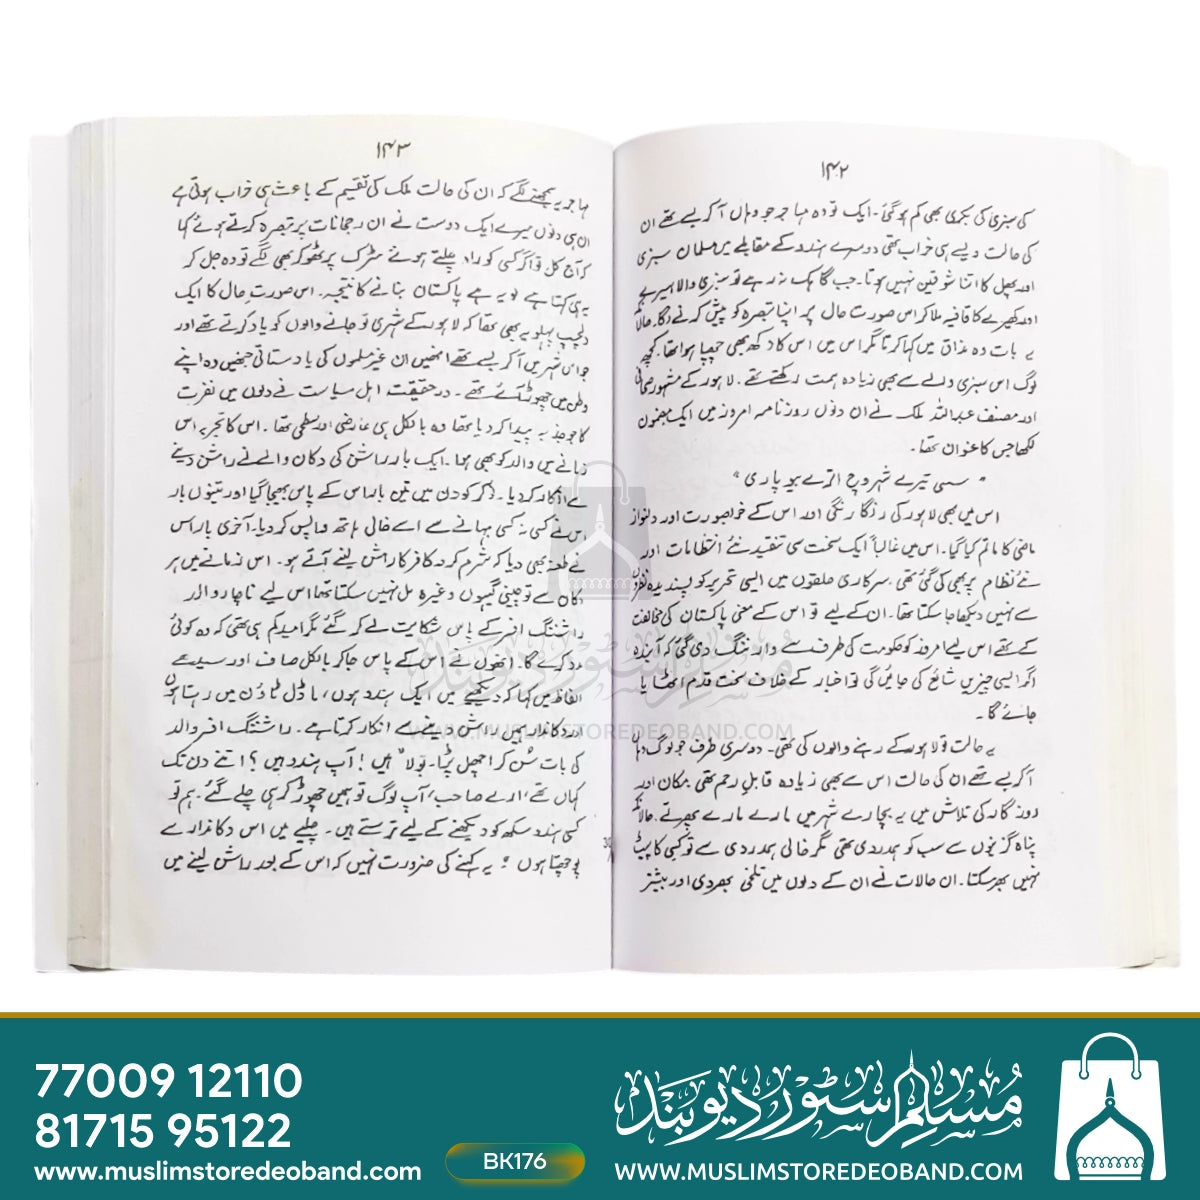 ۱۴۲
کی سبزی کی بکری بھی کم ہو گئی۔ ایک تو وہ مہاجر جو وہاں آ کر بسے تھے ان
کی حالت ویسے ہی خراب تھی دوسرے ہندو کے مقابلے میں مسلمان سبزی
اور پھل کا اتنا شوقین نہیں ہوتا۔ جب گاہک نہ رہے تو سبزی والا ہیرے
اور کھیرے کا قافیہ ملا کر اس صورت حال پر اپنا تبصرہ کو پیش کرنے لگا۔ حالانکہ
یہ بات وہ مذاق میں کہا کرتا مگر اس میں اس کا دکھ بھی چھپا ہوا تھا۔ کچھ
لوگ اس سبزی والے سے بھی زیادہ ہمت رکھتے تھے۔ لاہور کے مشہور صحافی
اور مصنف عبداللہ ملک نے ان دنوں روزنامہ امروز میں ایک مضمون
لکھا جس کا عنوان تھا۔
" سسی تیرے شہر وچ اترے بیوپاری "
اس میں بھی لاہور کی رنگا رنگی اور اس کے خوبصورت اور دلنواز
ماضی کا ماتم کیا گیا۔ اس میں غالباً ایک سخت سی تنقید نئے انتظامات اور
نئے نظام پر بھی کی گئی تھی۔ سرکاری حلقوں میں ایسی تحریر کو پسندیدہ نظروں
سے نہیں دیکھا جا سکتا تھا۔ ان کے لیے تو اس کے معنی پاکستان کی مخالفت
کے تھے اس لیے امروز کو حکومت کی طرف سے وارننگ دی گئی کہ آئندہ
اگر ایسی چیزیں شائع کی جائیں گی تو اخبار کے خلاف سخت قدم اٹھایا
جائے گا۔
یہ حالت تو لاہور کے رہنے والوں کی تھی۔ دوسری طرف جو لوگ وہاں
آ کر بسے تھے ان کی حالت اس سے بھی زیادہ قابل رحم تھی مکان اور
روزگار کی تلاش میں یہ بچارے شہر میں مارے مارے پھرتے۔ حالانکہ
پناہ گزینوں سے سب کو ہمدردی تھی مگر خالی ہمدردی سے تو کسی کا پیٹ
نہیں بھر سکتا۔ ان حالات نے ان کے دلوں میں تلخی بھر دی اور بیشتر
۱۴۳
مہاجر یہ سمجھنے لگے کہ ان کی حالت ملک کی تقسیم کے باعث ہی خراب ہوئی ہے
ان ہی دنوں میرے ایک دوست نے ان رجحانات پر تبصرہ کرتے ہوئے کہا
کہ آج کل تو اگر کسی کو راہ چلتے ہوئے سڑک پر ٹھوکر بھی لگے تو وہ جل کر
یہی کہتا ہے لو یہ ہے پاکستان بنانے کا نتیجہ۔ اس صورت حال کا ایک
دلچسپ پہلو یہ بھی تھا کہ لاہور کے شہری تو جانے والوں کو یاد کرتے تھے اور
جو اس شہر میں آ کر بسے تھے انھیں ان غیر مسلموں کی یاد ستاتی جنھیں وہ اپنے
وطن میں چھوڑ آئے تھے۔ درحقیقت اہل سیاست نے دلوں میں نفرت
کا جو جذبہ پیدا کر دیا تھا وہ بالکل ہی عارضی اور سطحی تھا۔ اس کا تجربہ اس
زمانے میں والد کو بھی ہوا۔ ایک بار راشن کی دکان والے نے راشن دینے
سے انکار کر دیا۔ نوکر کو دن میں تین بار اس کے پاس بھیجا گیا اور تینوں بار
اس نے کسی نہ کسی بہانے سے اسے خالی ہاتھ واپس کر دیا۔ آخری بار اس
نے طعنہ بھی دیا کہ شرم کرو کافر کا راشن لینے آتے ہو۔ اس زمانے میں ہر
دکان سے تو چینی گیہوں وغیرہ مل نہیں سکتا تھا اس لیے ناچار والد
راشننگ افسر کے پاس شکایت لے کر گئے مگر امید کم ہی تھی کہ وہ کوئی
مدد کرے گا۔ انھوں نے اس کے پاس جا کر بالکل صاف اور سیدھے
الفاظ میں کہا کہ دیکھیے میں ایک ہندو ہوں، ماڈل ٹاؤن میں رہتا ہوں
اور دکاندار ہمیں راشن دینے سے انکار کرتا ہے۔ راشننگ افسر والد
کی بات سُن کر اچھل پڑا۔ بولا "ہیں! آپ ہندو ہیں؟ اتنے دن تک
کہاں تھے، ارے صاحب، آپ لوگ تو ہمیں چھوڑ کر ہی چلے گئے۔ ہم تو
کسی ہندو سکھ کو دیکھنے کے لیے ترستے ہیں۔ چلیے میں اس دکاندار سے
پوچھتا ہوں؟ یہ کہنے کی ضرورت نہیں کہ اس کے بعد راشن لینے میں
مسلم سٹور دیوبند
WWW.MUSLIMSTOREDEOBAND.COM
77009 12110
81715 95122
www.muslimstoredeoband.com
BK176
مُسلم سٹور دیوبند
WWW.MUSLIMSTOREDEOBAND.COM